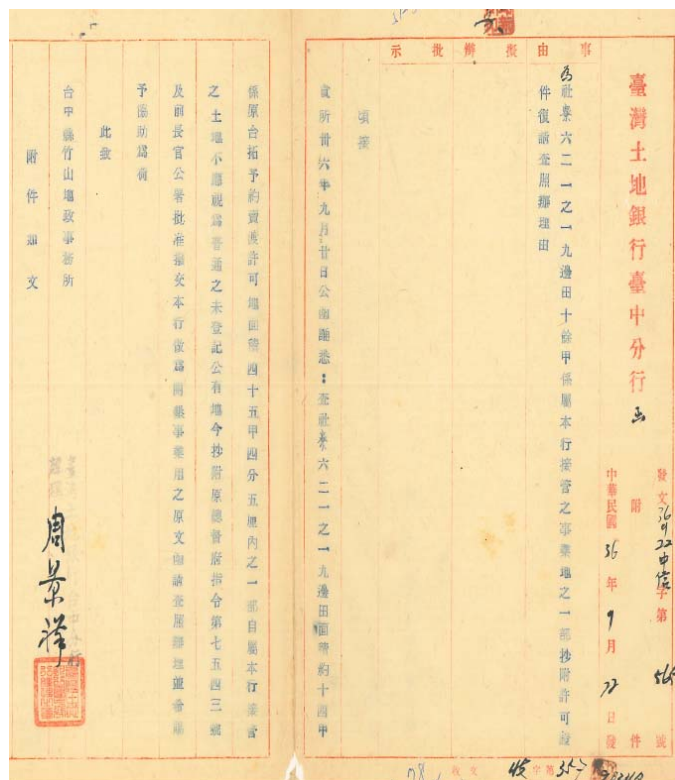 臺灣土地銀行臺中分行 函
發文36 9 22中信字第565號
附件
中華民國36年9月22日發
事由擬辦批示
為社寮六二一之一九邊田十餘甲係屬本行接管之事業地之一部抄附許可證
件復請查照辦理由
頃接
貴所卅六年九月廿日公函聽悉:查社寮六二一之一九邊田面積約十四甲
係原台拓予約賣渡許可地面積四十五甲四分五厘內之一部自屬本行接管
之土地不應視為普通之未登記公有地今抄附原總督府指令第七五四三號
及前長官公署批准撥交本行做為開墾事業用之原文函請查照辦理並希賜
予協助為荷
此致
台中縣竹山地政事務所
附件如文
周景祥
收文 收字第357號